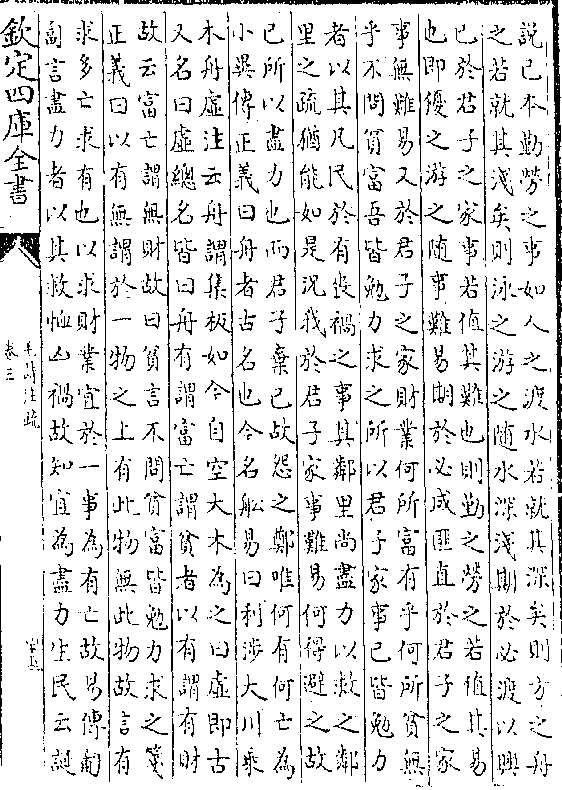 說已本勤勞之事如人之渡水若就其深矣則方之舟
之若就其淺矣則泳之游之隨水深淺期於必渡以興
已於君子之家事若值其難也則勤之勞之若值其易
也即優之游之隨事難易期於必成匪直於君子之家
事無難易又於君子之家財業何所富有乎何所貧無
乎不問貧富吾皆勉力求之所以君子家事已皆勉力
者以其凡民於有喪禍之事其鄰里尚盡力以救之鄰
里之疏猶能如是況我於君子家事難易何得避之故
已所以盡力也而君子棄已故怨之鄭唯何有何亡為
小異傳正義曰舟者古名也今名舩易曰利涉大川乘
木舟虛注云舟謂集板如今自空大木為之曰虛即古
又名曰虛總名皆曰舟有謂富亡謂貧者以有謂有財
故云富亡謂無財故曰貧言不問貧富皆勉力求之箋
正義曰以有無謂於一物之上有此物無此物故言有
求多亡求有也以求財業宜於一事為有亡故易傳匍
匐言盡力者以其救恤凶禍故知宜為盡力生民云誕
欽定四庫全書
毛詩注疏
卷三